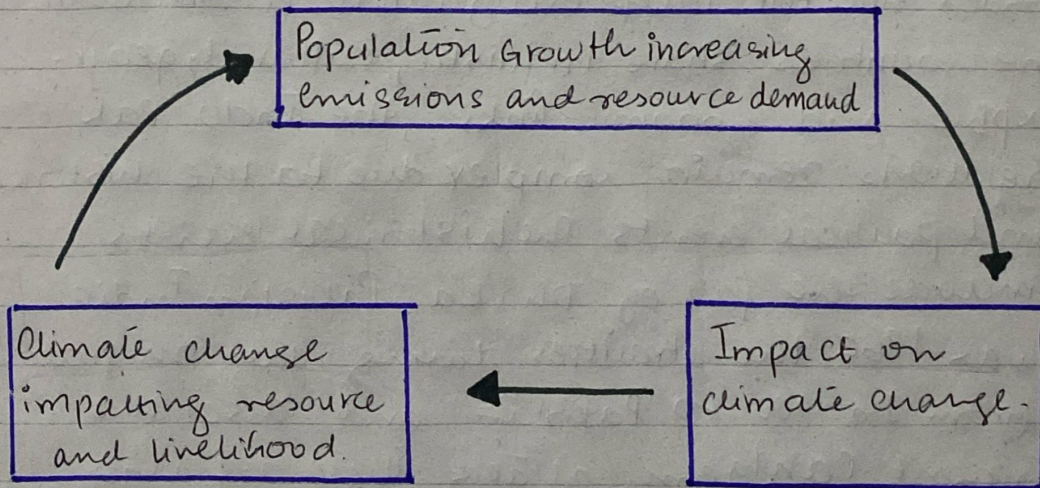 Population Growth increasing
emissions and resource demand
Impact on
climate change.
Climate change
impacting resource
and livelihood.